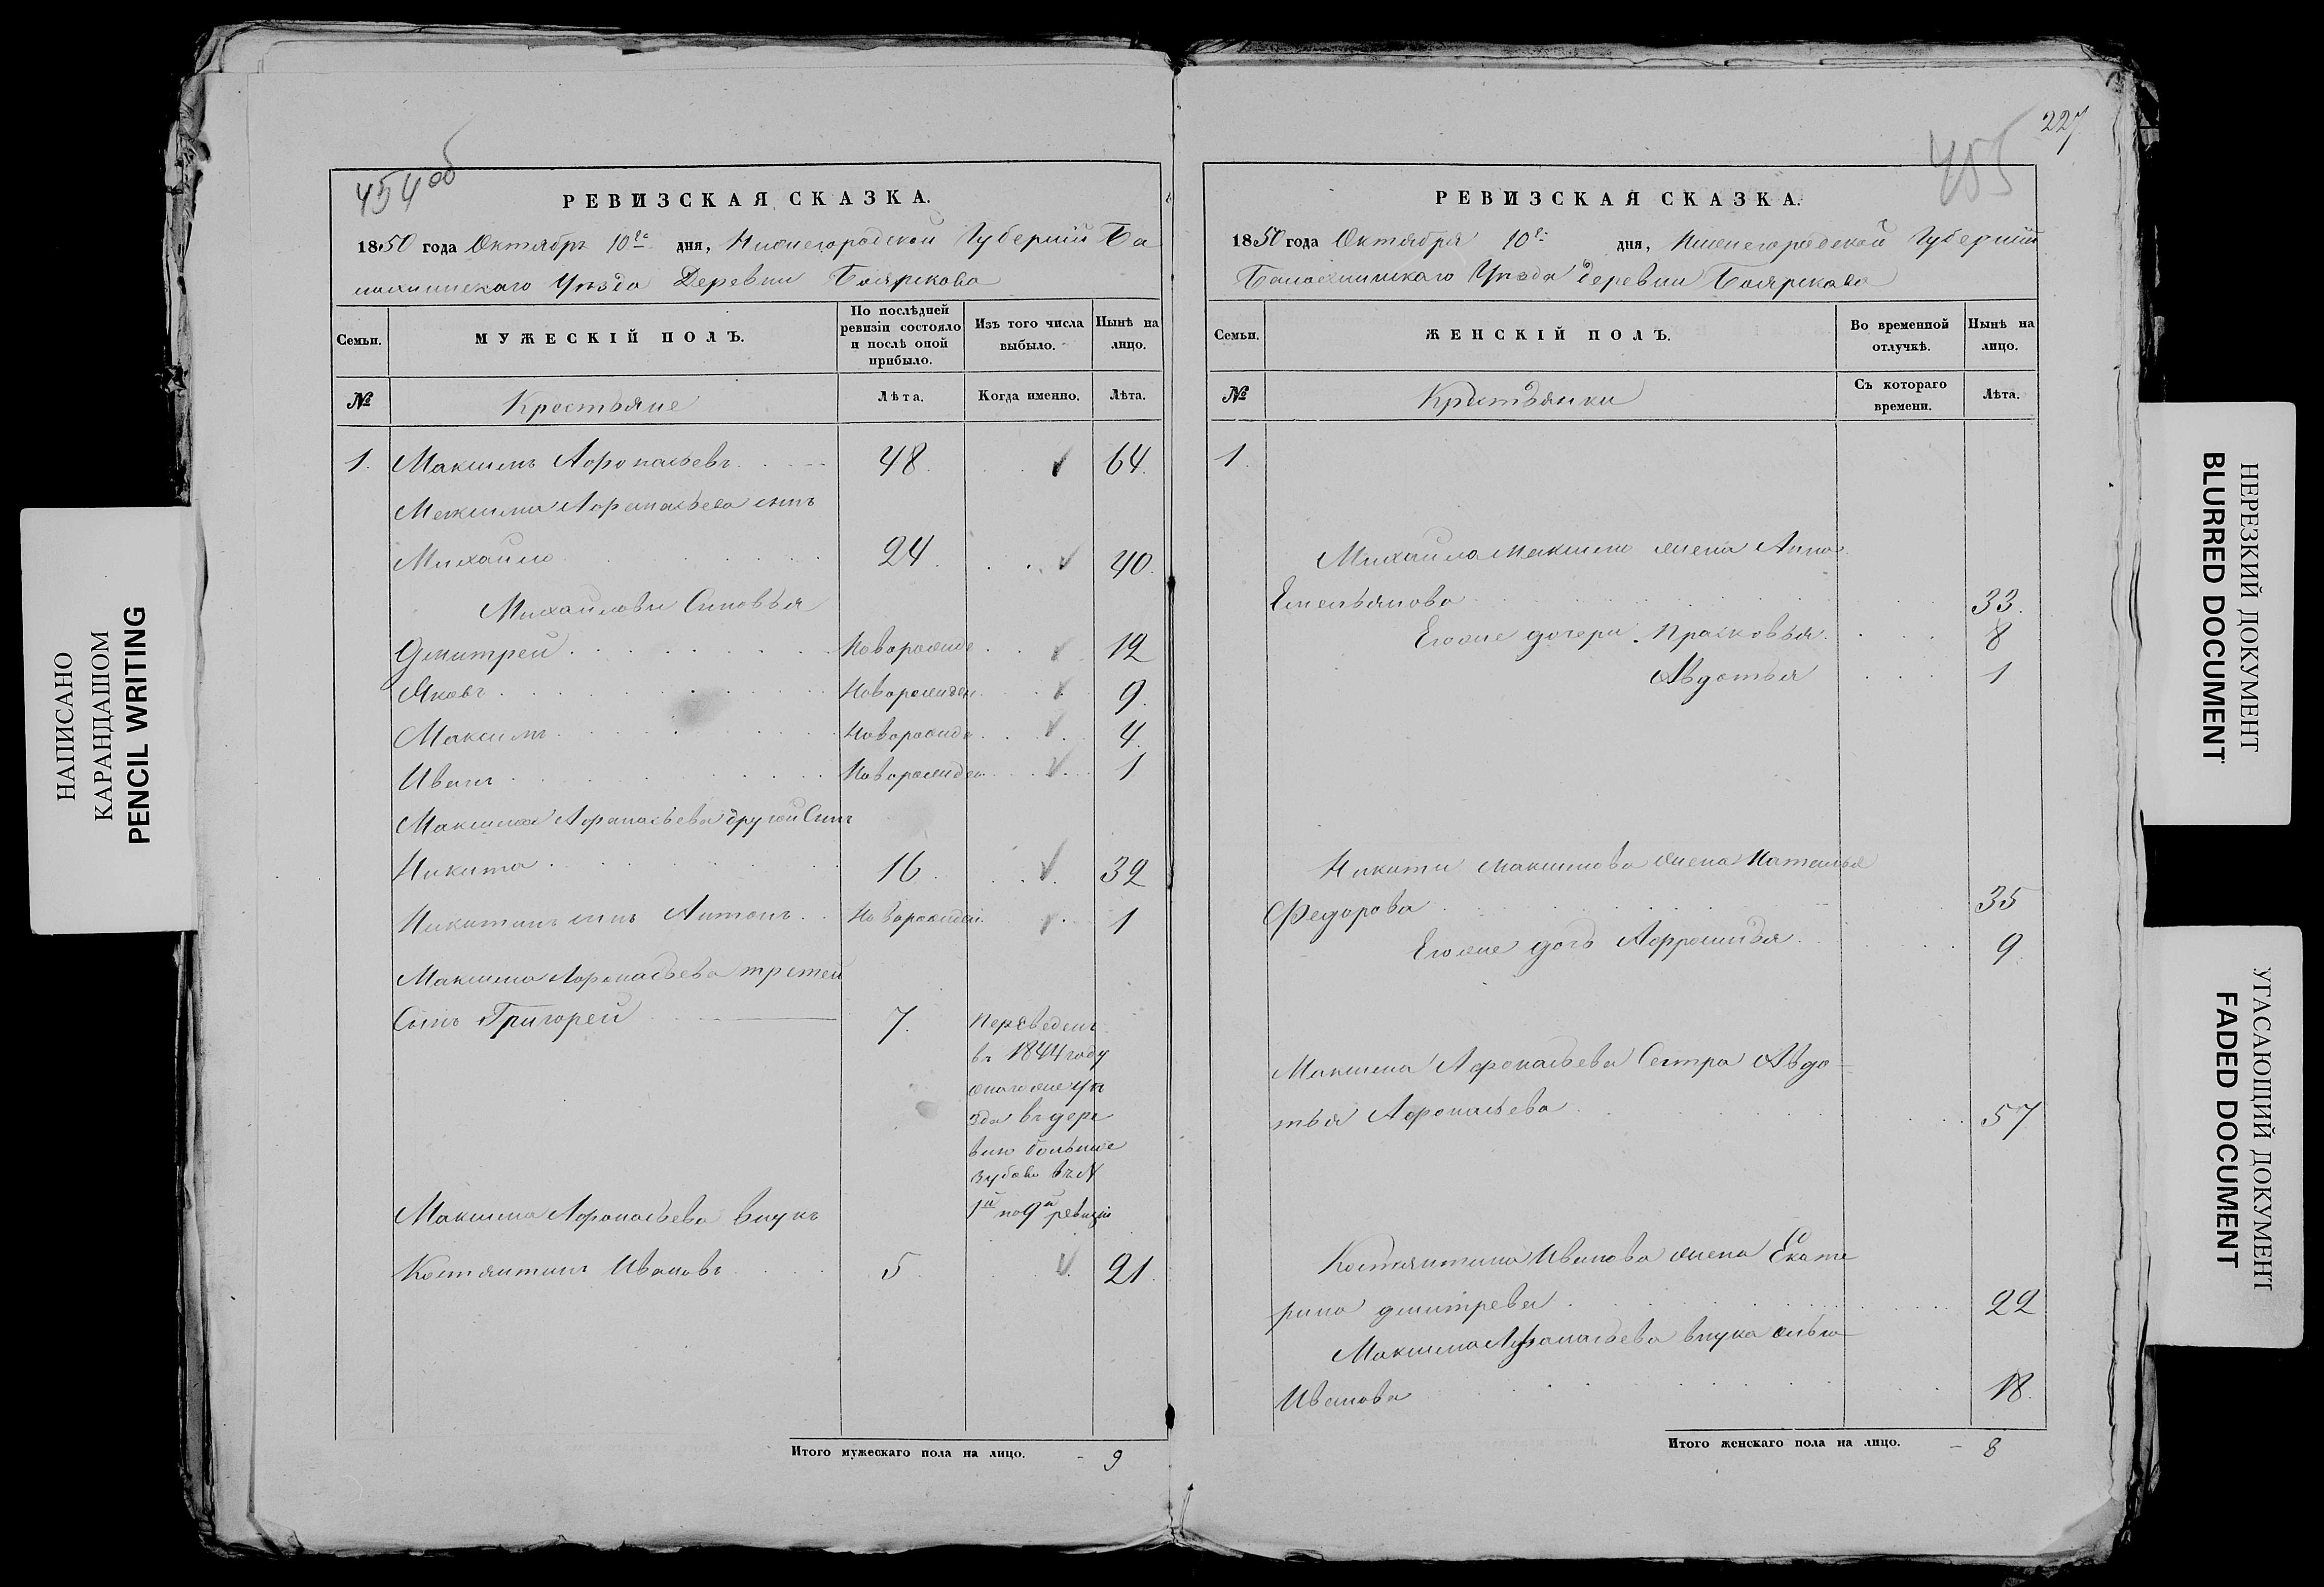 НАПИСАНО
КАРАНДАШОМ
PENCIL WRITING
454об
РЕВИЗСКАЯ СКАЗКА.
1850 года Октябрь 10го дня, Нижегородской Губернiи Ба
лахнинскаго Уѣзда Деревни Боярскова
Семьи.
МУЖЕСКІЙ ПОЛЪ.
По послѣдней ревизіи состояло и послѣ оной прибыло.
Изъ того числа выбыло.
Нынѣ на лицо.
№
Крестьяне
Лѣта.
Когда именно.
Лѣта.
1. Максимъ Афонасьевъ 48. 64.
Максима Афонасьева сынъ
Михайло 24. 40.
Михайловы Сыновья
Дмитрей Новорожде 12
Яковъ Новорожден. 9.
Максимъ Новорожде 4.
Иванъ Новорожден 1
Максима Афонасьева другой Сынъ
Никита 16. 32
Никитинъ сынъ Антонъ Новорожден. 1
Максима Афонасьева третей
Сынъ Григорей 7. Переведенъ
въ 1844 году
онаго же уѣ
зда въ дере
вню большие
Зубово въ №
1й по 9й ревизiи
Максима Афонасьева внукъ
Костянтинъ Ивановъ 5 21.
Итого мужескаго пола на лицо. - 9
227
455
РЕВИЗСКАЯ СКАЗКА.
1850 года Октября 10го дня, Нижегородской Губернiи
Балахнинскаго Уѣзда деревни Боярскова
Семьи.
ЖЕНСКІЙ ПОЛЪ.
Во временной отлучкѣ.
Нынѣ на лицо.
№
Крестьянки
Съ котораго времени.
Лѣта.
1.
Михайла Максимо жена Анна
Емельянова 33.
Егоже дочери Прасковья 8
Авдотья 1
Никиты Максимова жена Наталья
Федорова 35
Егоже дочь Аффросинья 9.
Максима Афонасьева Сестра Авдо-
тья Афонасьева 57
Костянтина Иванова жена Екате
рина дмитрева 22
Максима Афонасьева внука ольга
Иванова 18.
Итого женскаго пола на лицо. - 8
НЕРЕЗКИЙ ДОКУМЕНТ
BLURRED DOCUMENT
УГАСАЮЩИЙ ДОКУМЕНТ
FADED DOCUMENT